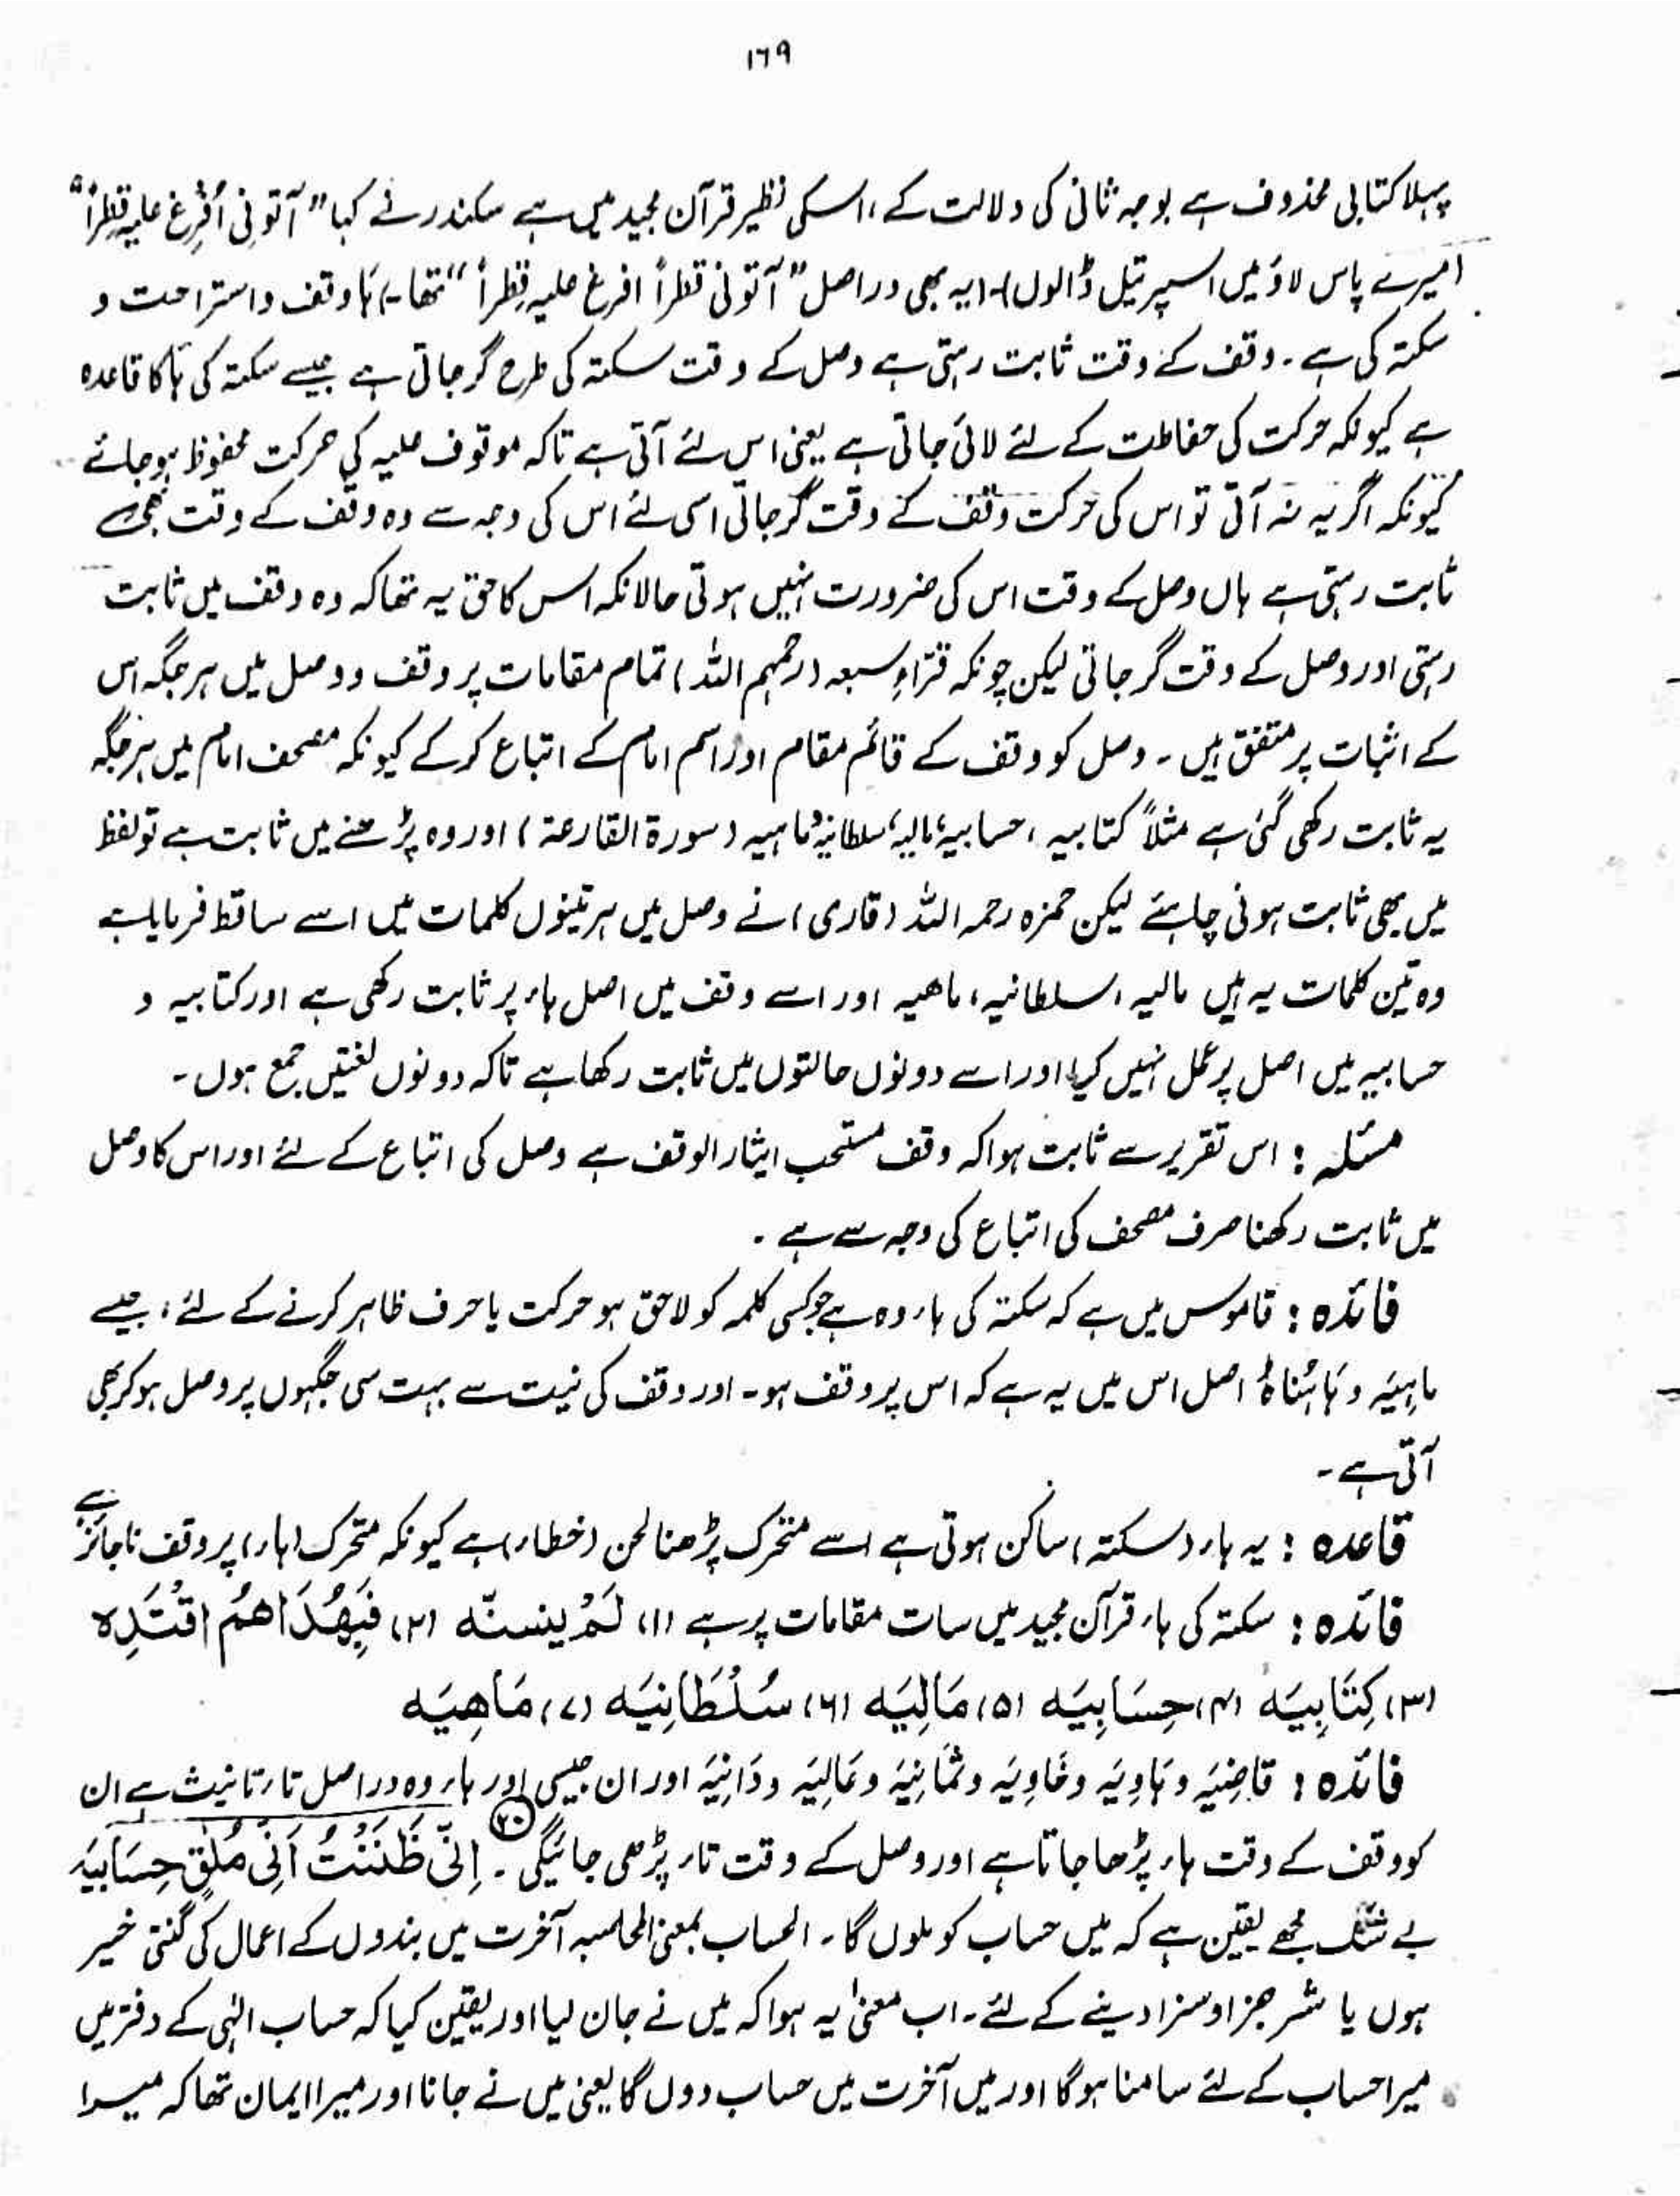 ۱۶۹
پہلا کتابی محذوف ہے بوجہ ثانی کی دلالت کے ، اسکی نظیر قرآن مجید میں ہے سکندر نے کہا " آتونی اُفرِغ علیہ قطراً "
(میرے پاس لاؤ میں اسپر تیل ڈالوں) ۔ (یہ بھی دراصل " آتونی قطراً افرغ علیہ قطراً " تھا ۔) ہَا وقف و استراحت و
سکتہ کی ہے ۔ وقف کے وقت ثابت رہتی ہے وصل کے وقت سکتہ کی طرح گر جاتی ہے جیسے سکتہ کی ہَا کا قاعدہ
ہے کیونکہ حرکت کی حفاظت کے لئے لائی جاتی ہے یعنی اس لئے آتی ہے تاکہ موقوف علیہ کی حرکت محفوظ ہو جائے
کیونکہ اگر یہ نہ آتی تو اس کی حرکت وقف کے وقت گر جاتی اسی لئے اس کی وجہ سے وہ وقف کے وقت بھی
ثابت رہتی ہے ہاں وصل کے وقت اس کی ضرورت نہیں ہوتی حالانکہ اس کا حق یہ تھا کہ وہ وقف میں ثابت
رہتی اور وصل کے وقت گر جاتی لیکن چونکہ قرّاءِ سبعہ (رحمہم اللہ) تمام مقامات پر وقف و وصل میں ہر جگہ اس
کے اثبات پر متفق ہیں ۔ وصل کو وقف کے قائم مقام اور اسم امام کے اتباع کر کے کیونکہ مصحف امام میں ہر جگہ
یہ ثابت رکھی گئی ہے مثلاً کتابیہ ، حسابیہ ، مالیہ ، سلطانیہ و ماہیہ (سورۃ القارعۃ) اور وہ پڑھنے میں ثابت ہے تو لفظ
میں بھی ثابت ہونی چاہئے لیکن حمزہ رحمہ اللہ (قاری) نے وصل میں ہر تینوں کلمات میں اسے ساقط فرمایا ہے
وہ تین کلمات یہ ہیں مالیہ ، سلطانیہ ، ماھیہ اور اسے وقف میں اصل ہاء پر ثابت رکھی ہے اور کتابیہ و
حسابیہ میں اصل پر عمل نہیں کیا اور اسے دونوں حالتوں میں ثابت رکھا ہے تاکہ دونوں لغتیں جمع ہوں ۔
مسئلہ : اس تقریر سے ثابت ہوا کہ وقف مستحب ایثار الوقف ہے وصل کی اتباع کے لئے اور اس کا وصل
میں ثابت رکھنا صرف مصحف کی اتباع کی وجہ سے ہے ۔
فائدہ : قاموس میں ہے کہ سکتہ کی ہاء وہ ہے جو کسی کلمہ کو لاحق ہو حرکت یا حرف ظاہر کرنے کے لئے ، جیسے
ماہِیَہ و ہَاہُناہُ اصل اس میں یہ ہے کہ اس پر وقف ہو ۔ اور وقف کی نیت سے بہت سی جگہوں پر وصل ہو کر بھی
آتی ہے ۔
قاعدہ : یہ ہاء (سکتہ) ساکن ہوتی ہے اسے متحرک پڑھنا لحن (خطاء) ہے کیونکہ متحرک (ہاء) پر وقف ناجائز ہے
فائدہ : سکتہ کی ہاء قرآن مجید میں سات مقامات پر ہے (۱) لَمْ یتسنّہ (۲) فَبِھُدَاھُمُ اقْتَدِہ
(۳) کِتَابِیَہ (۴) حِسَابِیَہ (۵) مَالِیَہ (۶) سُلْطَانِیَہ (۷) مَاھِیَہ
فائدہ : قاضِیَہ و ہَاوِیَہ و خَاوِیَہ و ثمَانِیَہ و عَالِیَہ و دَانِیَہ اور ان جیسی اور ہاء وہ دراصل تاء تانیث ہے ان
کو وقف کے وقت ہاء پڑھا جاتا ہے اور وصل کے وقت تاء پڑھی جائیگی ۔ (۲۰) اِنِّی ظَنَنْتُ اَنِّی مُلٰقٍ حِسَابِیَہ
بے شک مجھے یقین ہے کہ میں حساب کو ملوں گا ۔ الحساب بمعنیٰ المحاسبہ آخرت میں بندوں کے اعمال کی گنتی خیر
ہوں یا شر جزا و سزا دینے کے لئے ۔ اب معنیٰ یہ ہوا کہ میں نے جان لیا اور یقین کیا کہ حساب الٰہی کے دفتر میں
میرا حساب کے لئے سامنا ہوگا اور میں آخرت میں حساب دوں گا یعنی میں نے جانا اور میرا ایمان تھا کہ میرا